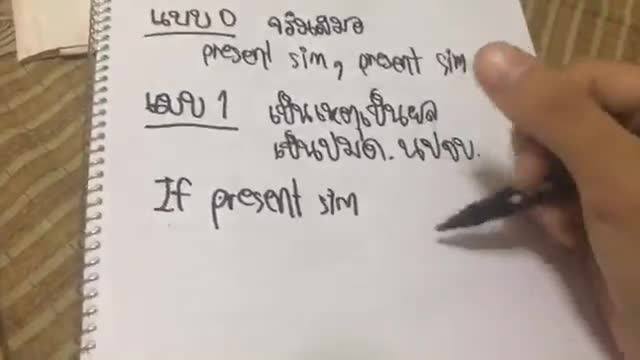 แบบ 0 จริงเสมอ
present sim, present sim
แบบ 1 เป็นเหตุเป็นผล
เป็นปมด. นปจบ.
If present sim